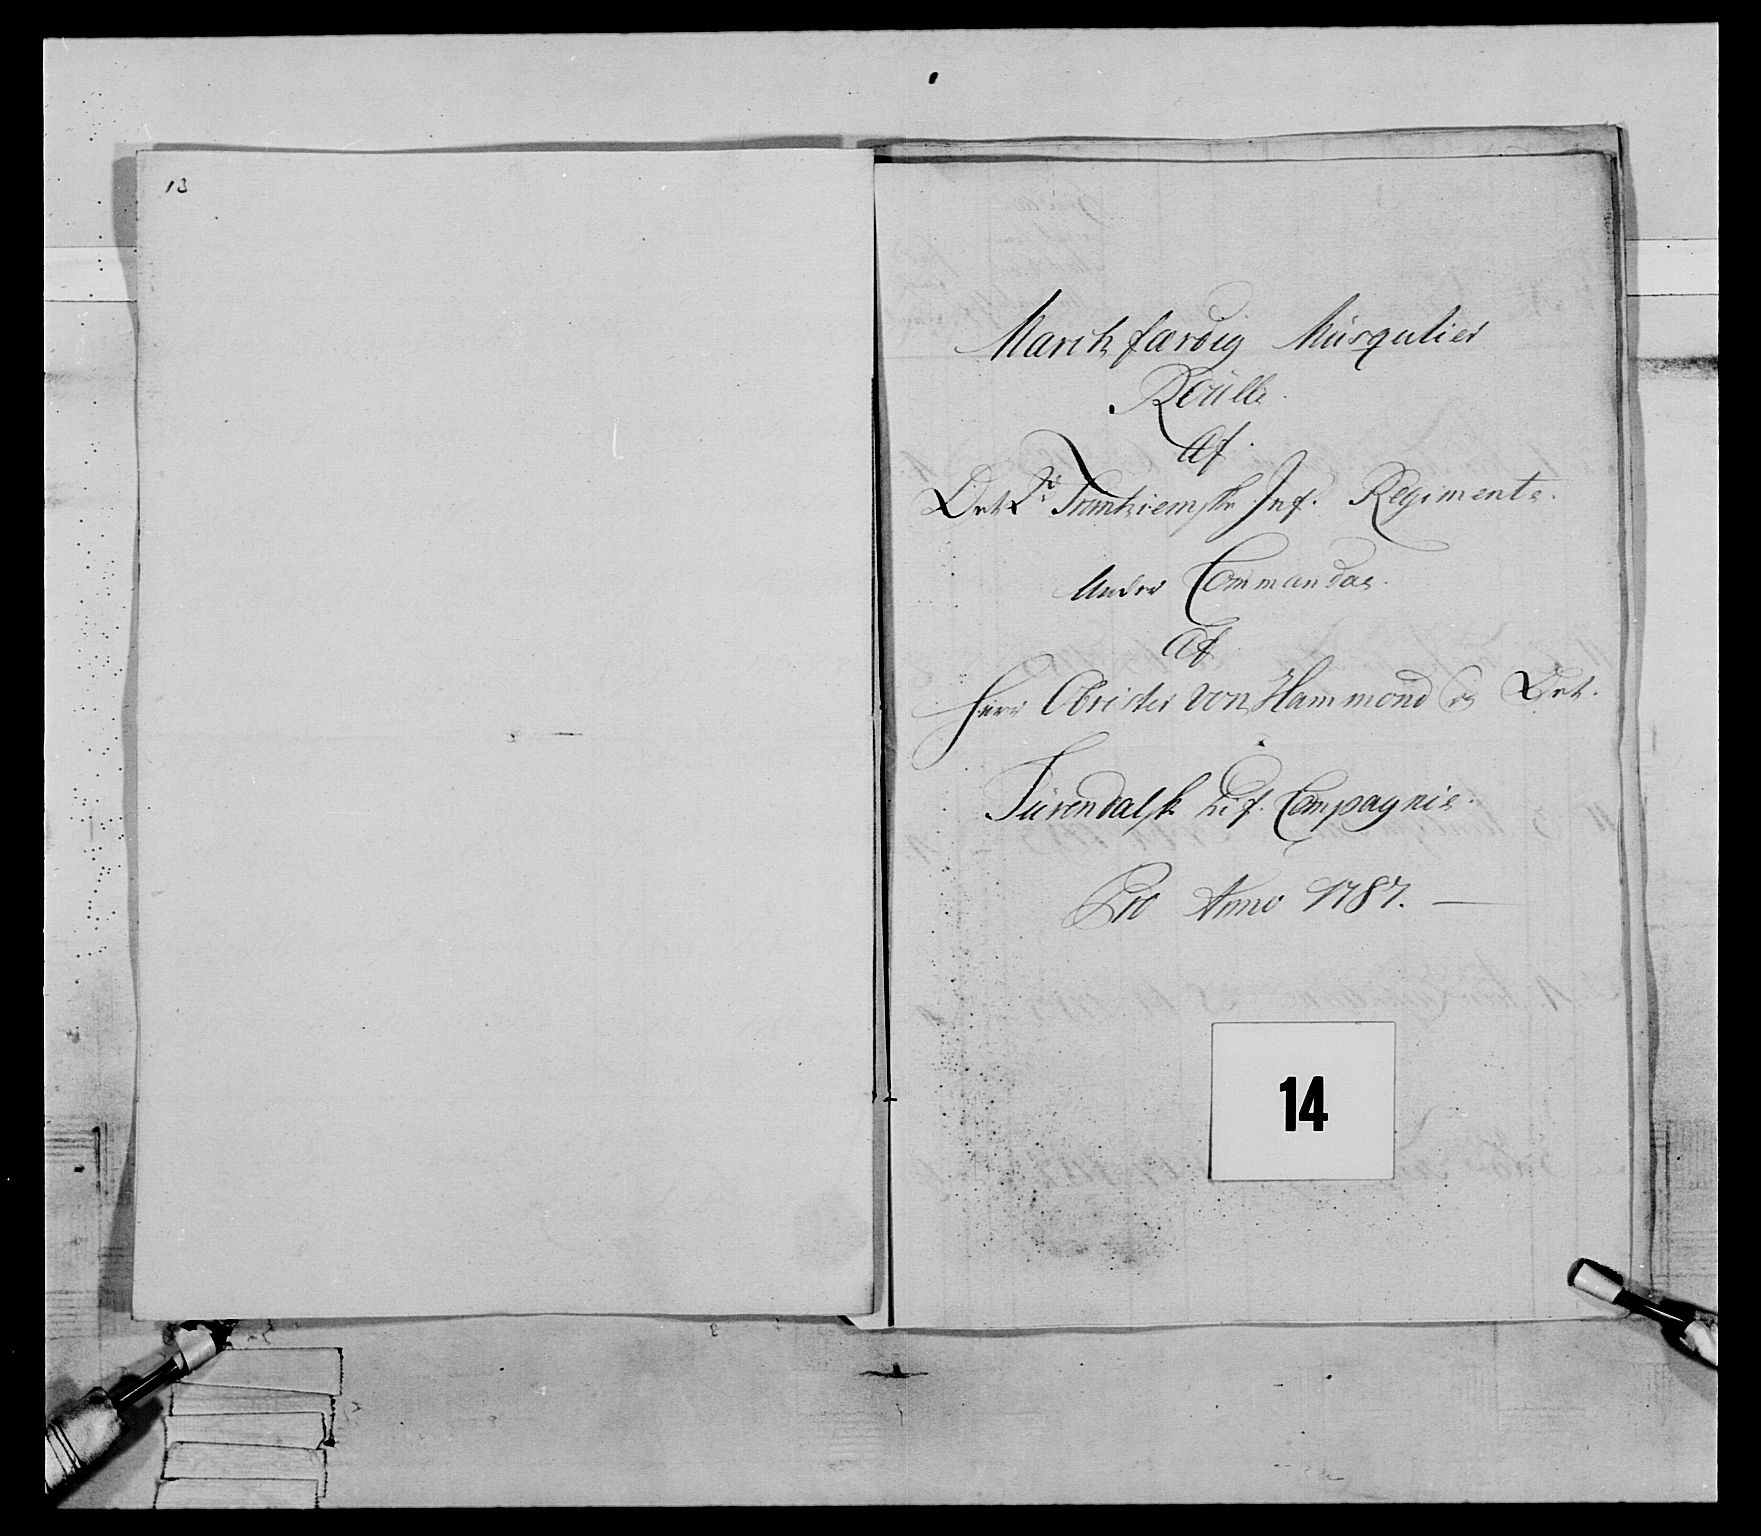 13
March færdig Müsqvetier
Roülle
Af
Det 2de Trontiemske Inf. Regimente.
Under Commando
Af
Herr Obrister von Hammond og Det
Sürendalsk Lif. Compagnie.
Pro Anno 1787. —
14